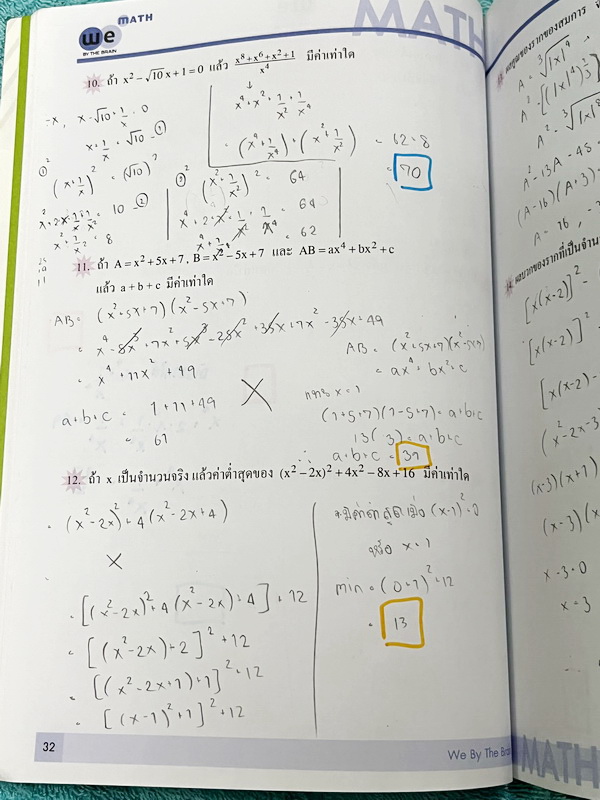 we MATH
BY THE BRAIN
MATH
10. ถ้า x² − √10 x + 1 = 0 แล้ว (x⁸ + x⁶ + x² + 1)/x⁴ มีค่าเท่าใด
÷x, x − √10 + 1/x = 0
x + 1/x = √10 — ①
①² (x + 1/x)² = (√10)²
x² + 2·x·1/x + 1/x² = 10 — ②
x² + 1/x² = 8
x⁴ + x² + 1/x² + 1/x⁴
= (x⁴ + 1/x⁴) + (x² + 1/x²) = 62 + 8
= 70
②² (x² + 1/x²)² = 64
x⁴ + 2·x²·1/x² + 1/x⁴ = 64
x⁴ + 1/x⁴ = 62
11. ถ้า A = x² + 5x + 7, B = x² − 5x + 7 และ AB = ax⁴ + bx² + c
แล้ว a + b + c มีค่าเท่าใด
AB = (x² + 5x + 7)(x² − 5x + 7)
= x⁴ − 5x³ + 7x² + 5x³ − 25x² + 35x + 7x² − 35x + 49
= x⁴ + 11x² + 49
a + b + c = 1 + 11 + 49
= 61
AB = (x² + 5x + 7)(x² − 5x + 7)
= ax⁴ + bx² + c
แทน x = 1
(1 + 5 + 7)(1 − 5 + 7) = a + b + c
13(3) = a + b + c
∴ a + b + c = 39
12. ถ้า x เป็นจำนวนจริง แล้วค่าต่ำสุดของ (x² − 2x)² + 4x² − 8x + 16 มีค่าเท่าใด
= (x² − 2x)² + 4(x² − 2x + 4)
= [(x² − 2x)² + 4(x² − 2x) + 4] + 12
= [(x² − 2x) + 2]² + 12
= [(x² − 2x + 1) + 1]² + 12
= [(x − 1)² + 1]² + 12
*มีค่าต่ำสุดเมื่อ (x − 1)² = 0
หรือ x = 1
min = (0 + 1)² + 12
= 13
32
We By The Brain
MATH
A = ³√|x|⁴
A² − 13A − 48
(A − 16)(A + 3) =
A = 16, −
[x(x − 2)]² −
[x(x − 2)]²
[x(x − 2) −
(x² − 2x − 3)
(x − 3)(x + 1)
(x − 3)(x
x − 3 = 0
x = 3